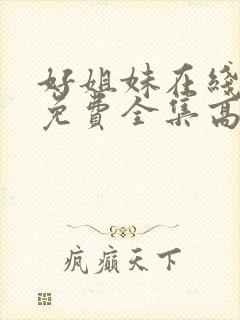 好姐妹在线
免费全集高
疯癫天下